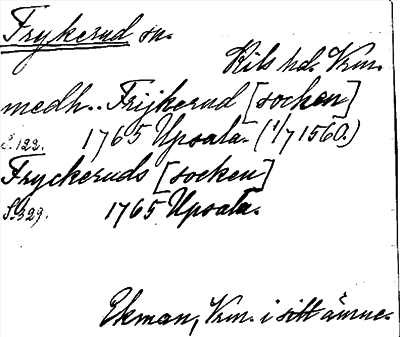 Frykerud sn.
Kils hd. Vrm.
medh.. Frijkerud [socken]
S. 122. 1765 Upsala. (1/7 1560.)
Fryckeruds [socken]
S. 329. 1765 Upsala.
Ekman, Vrm. i sitt ämne.